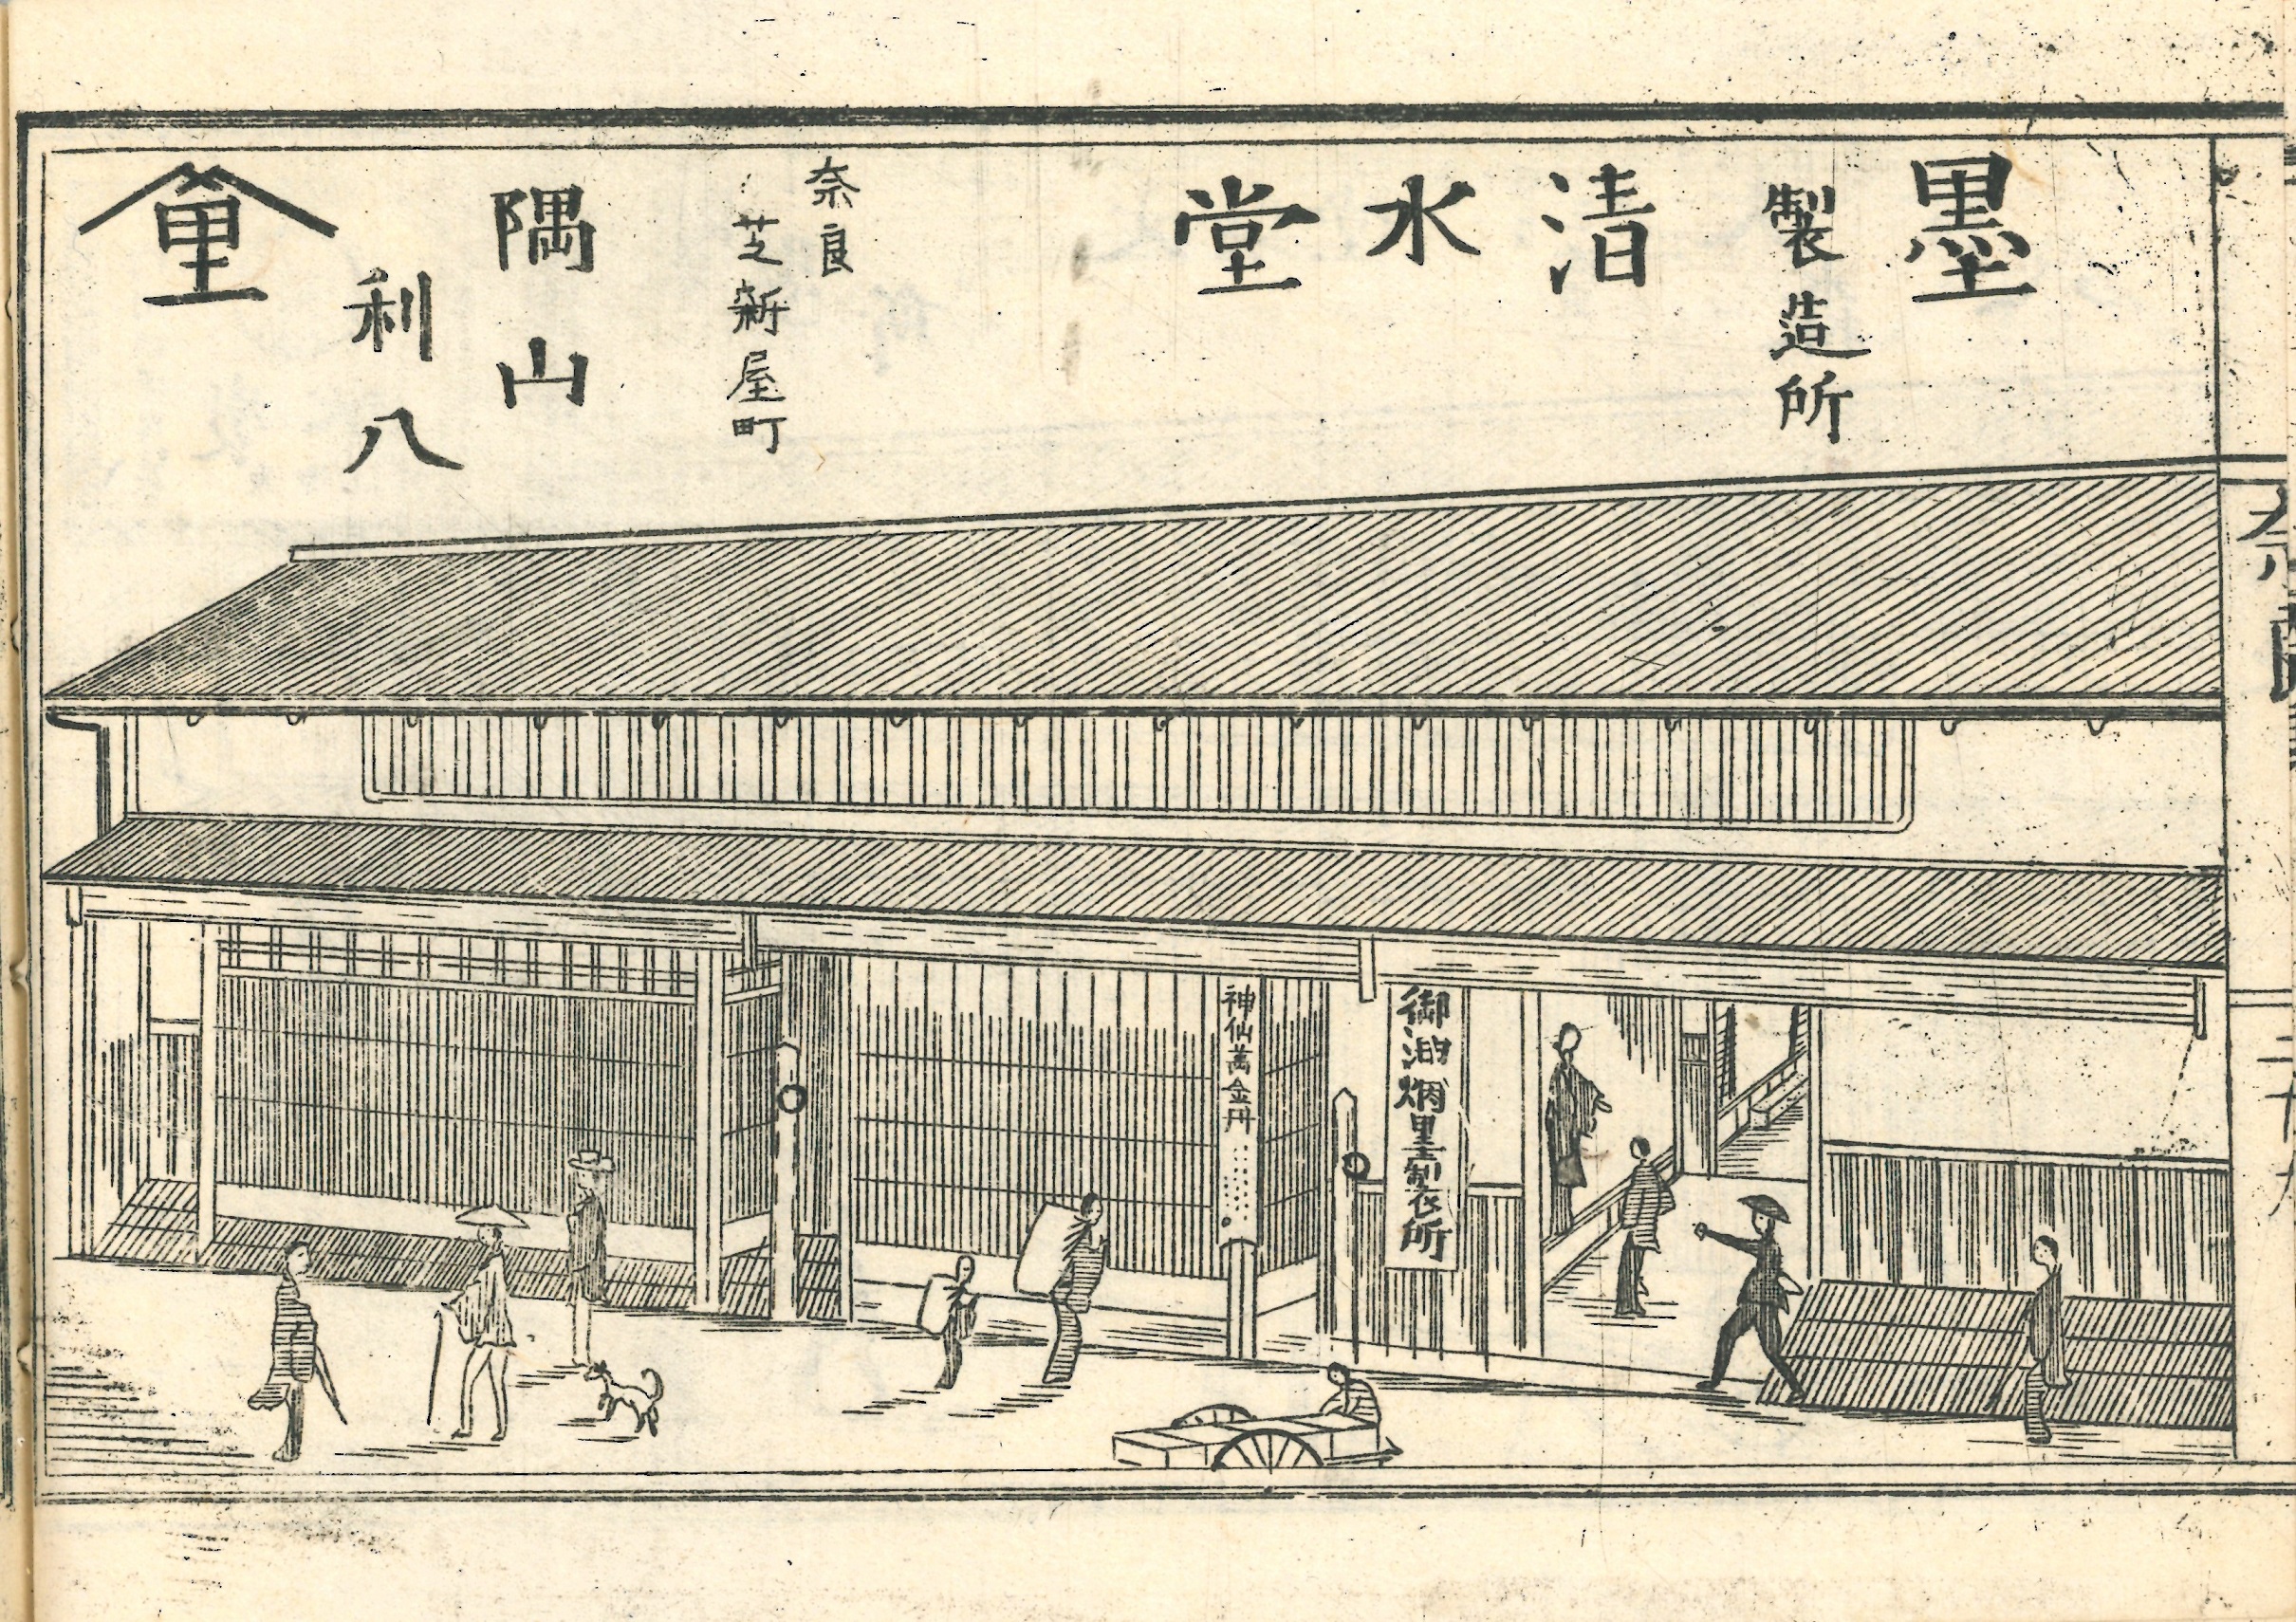 墨
製造所
清水堂
奈良
芝新屋町
隅山
利八
里
御油烟里製衣所
神仙萬金丹